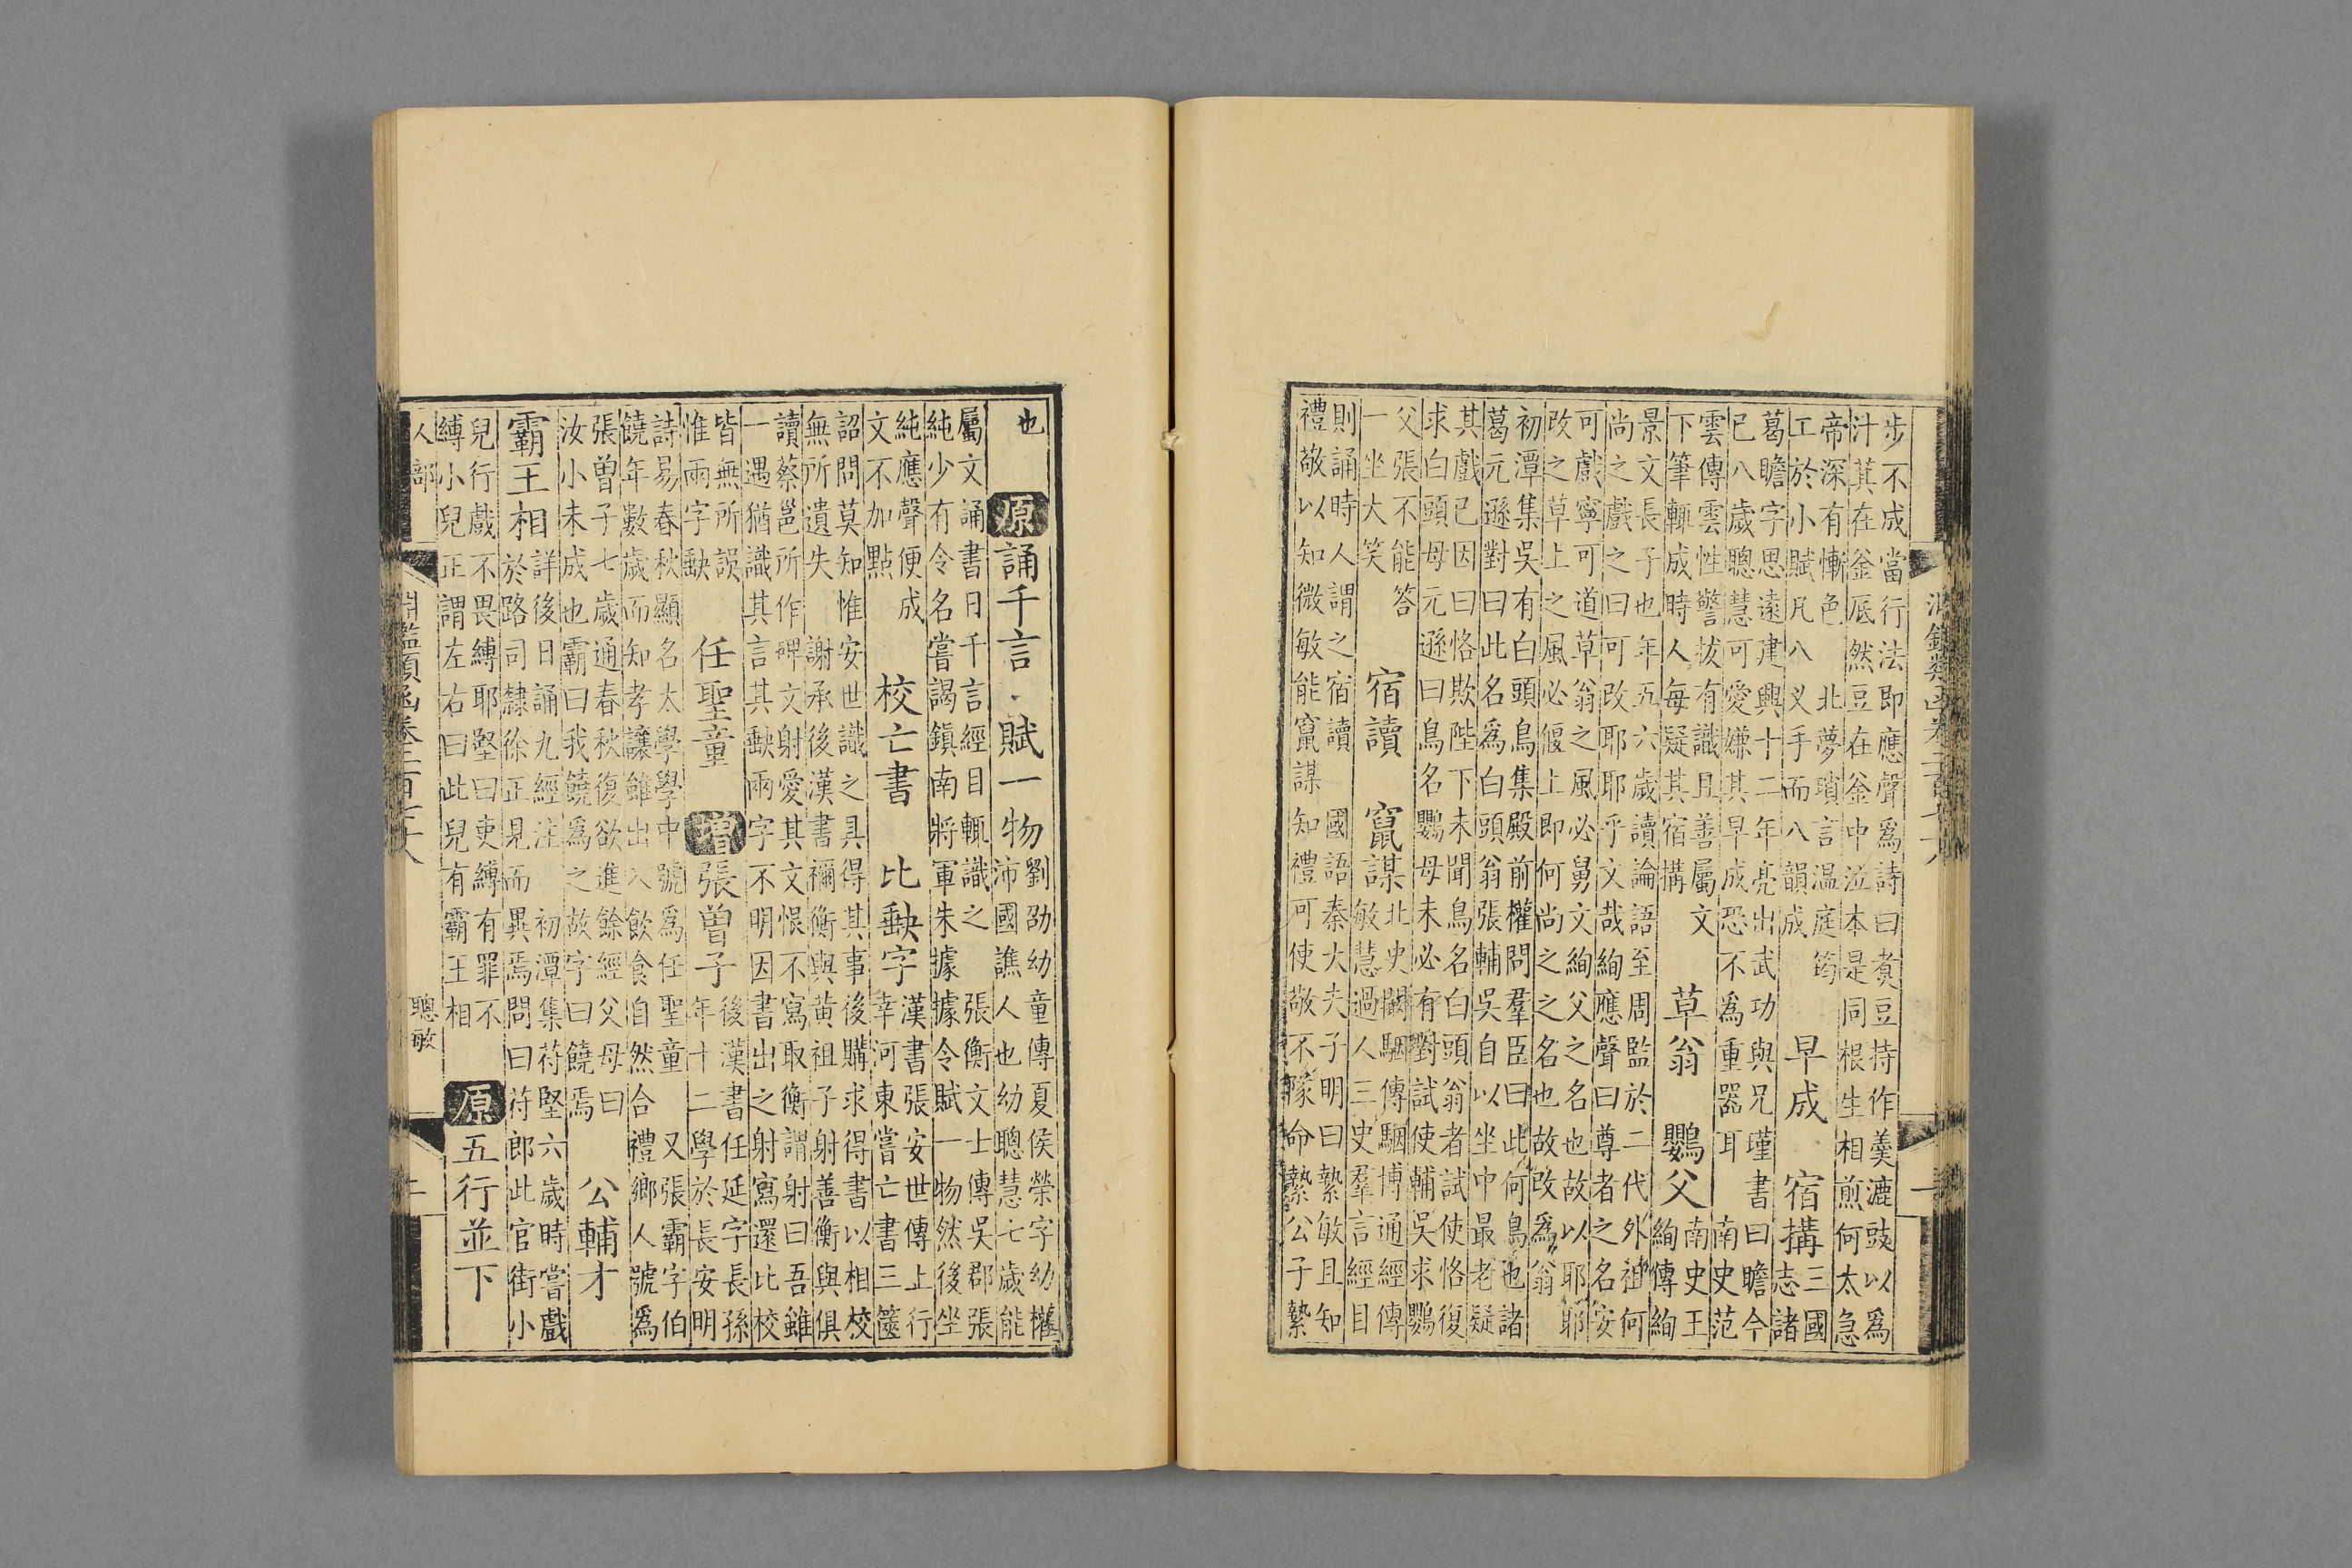 步不成當行法即應聲爲詩曰煑豆持作羹漉豉以爲
汁萁在釜底然豆在釜中泣本是同根生相煎何太急
帝深有慚色 北夢瑣言溫庭筠
工於小賦凡八叉手而八韻成
早成 宿搆
三國
志諸
葛瞻字思遠建興十二年亮出武功與兄瑾書曰瞻今
已八歲聰慧可愛嫌其早成恐不爲重器耳 南史范
雲傳雲性警拔有識且善屬文
下筆輒成時人每疑其宿搆
草翁 鸚父
南史王
絢傳絢
景文長子也年五六歲讀論語至周監於二代外祖何
尚之戲之曰可改耶耶乎文哉絢應聲曰尊者之名安
可戲寧可道草翁之風必舅文絢父之名也故以耶耶
改之草上之風必偃上即何尚之之名也故改爲翁
初潭集吳有白頭鳥集殿前權問羣臣曰此何鳥也諸
葛元遜對曰此名爲白頭翁張輔吳自以坐中最老疑
其戲已因曰恪欺陛下未聞鳥名白頭翁者試使恪復
求白頭母元遜曰鳥名鸚母未必有對試使輔吳求鸚
父張不能答
一坐大笑
宿讀 竄謀
北史闞駰傳駰博通經傳
敏慧過人三史羣言經目
則誦時人謂之宿讀 國語秦大夫子明曰縶敏且知
禮敬以知微敏能竄謀知禮可使敬不隊命縶公子縶
也
原 誦千言 賦一物
劉劭幼童傳夏侯榮字幼權
沛國譙人也幼聰慧七歲能
屬文誦書日千言經目輒識之 張衡文士傳吳郡張
純少有令名嘗謁鎮南將軍朱據據令賦一物然後坐
純應聲便成
文不加點
校亡書 比缺字
漢書張安世傳上行
幸河東嘗亡書三篋
詔問莫知惟安世識之具得其事後購求得書以相校
無所遺失 謝承後漢書禰衡與黄祖子射善衡與俱
讀蔡邕所作碑文射愛其文恨不寫取衡謂射曰吾雖
一遇猶識其言其缺兩字不明因書出之射寫還比校
皆無所誤
惟兩字缺
任聖童 增 張曾子
後漢書任延字長孫
年十二學於長安明
詩易春秋顯名太學學中號爲任聖童 又張霸字伯
饒年數歲而知孝讓雖出入飲食自然合禮鄉人號爲
張曾子七歲通春秋復欲進餘經父母曰
汝小未成也霸曰我饒爲之故字曰饒焉
公輔才
霸王相
詳後日誦九經注 初潭集苻堅六歲時嘗戲
於路司隸徐正見而異焉問曰苻郎此官街小
兒行戲不畏縛耶堅曰吏縛有罪不
縛小兒正謂左右曰此兒有霸王相
原 五行並下
人部 聰敏 二